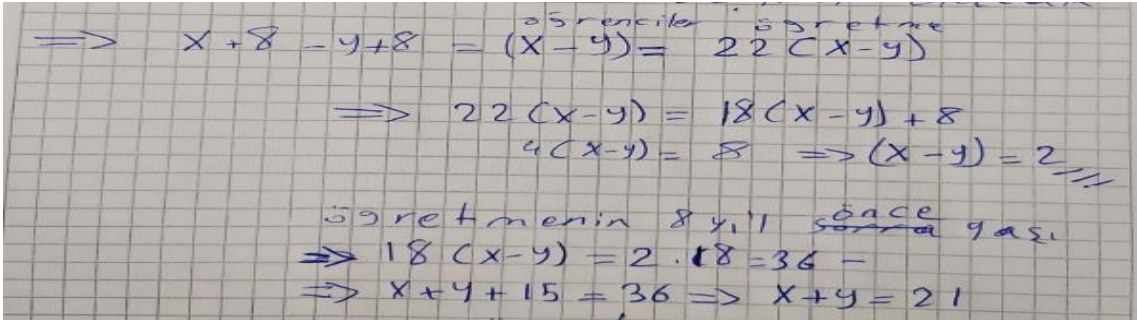 öğrenciler öğretme
=> x+8 - y+8 = (x-y) = 22(x-y)
=> 22(x-y) = 18(x-y) + 8
4(x-y) = 8 => (x-y) = 2
öğretmenin 8 yıl önce yaşı
=> 18(x-y) = 2.18 = 36 -
=> x+y+15 = 36 => x+y = 21